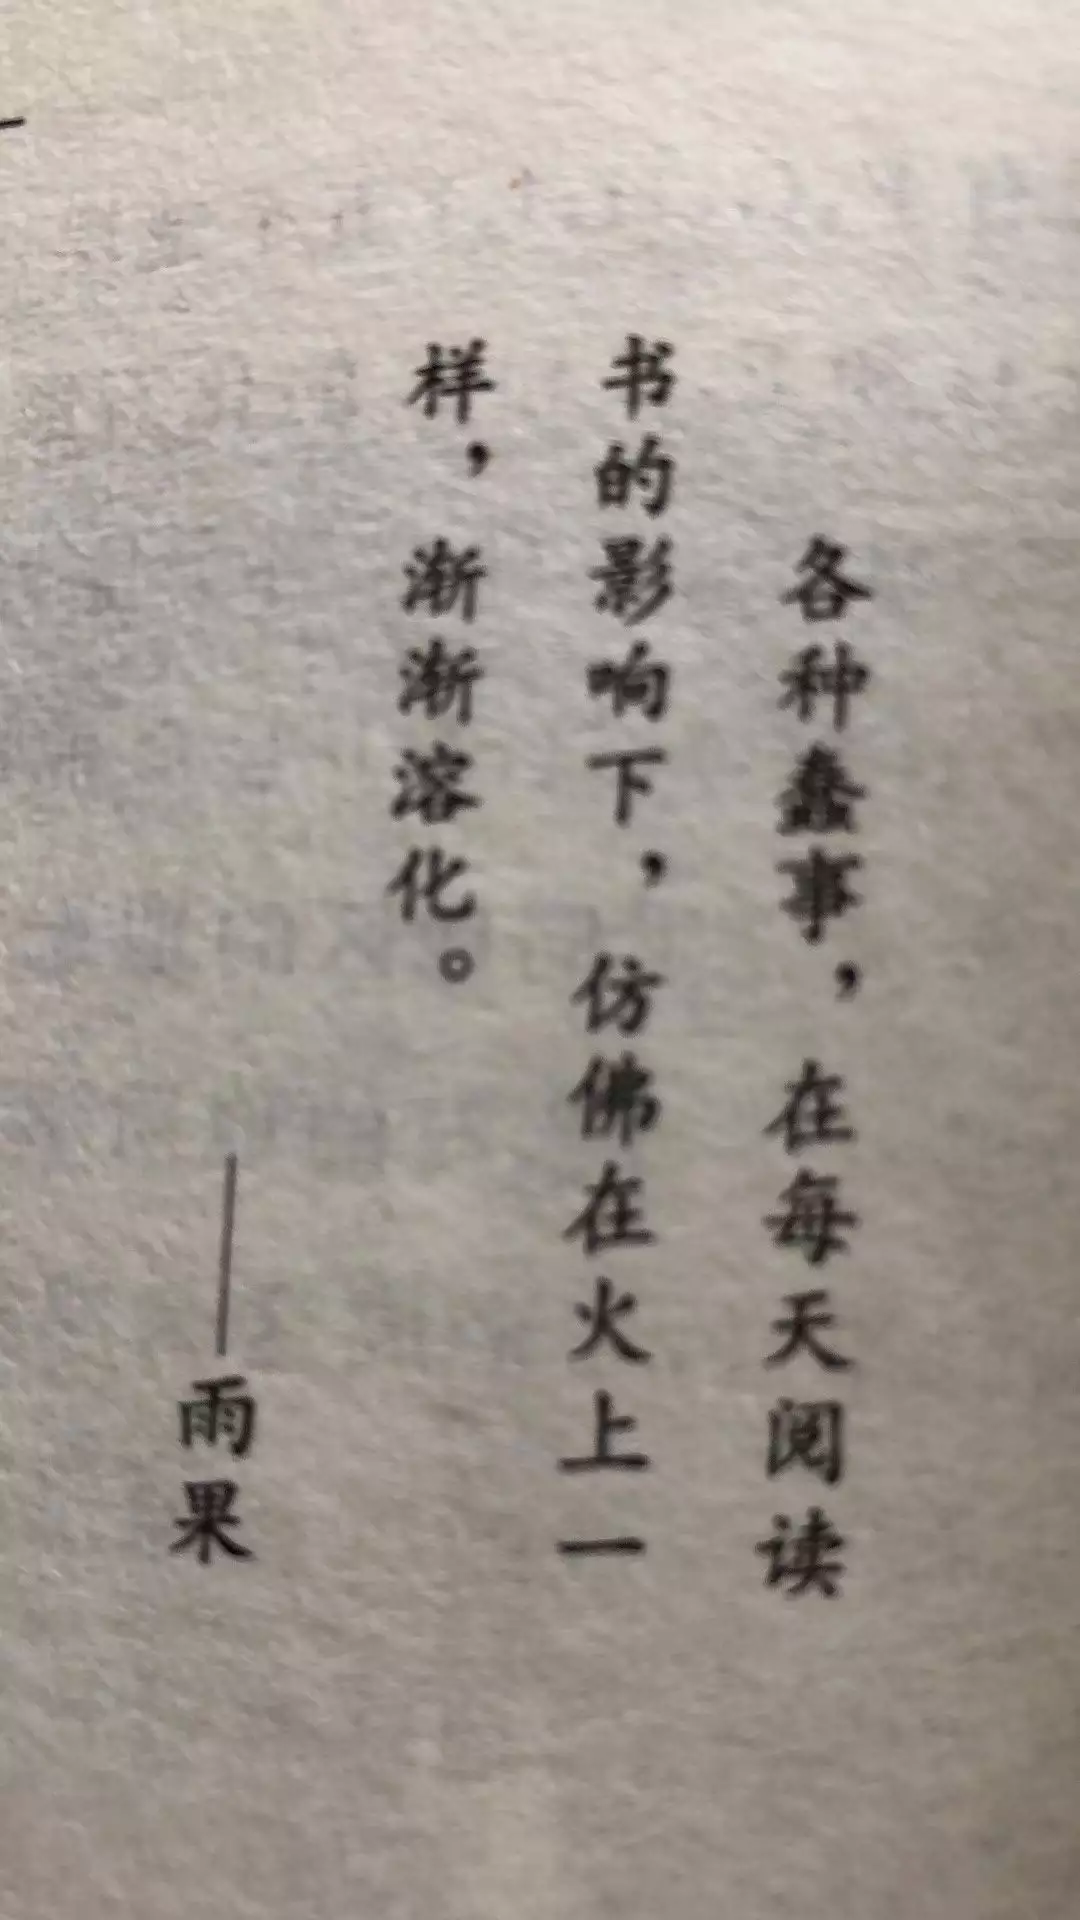 各种蠢事，在每天阅读
书的影响下，仿佛在火上一
样，渐渐溶化。
——雨果